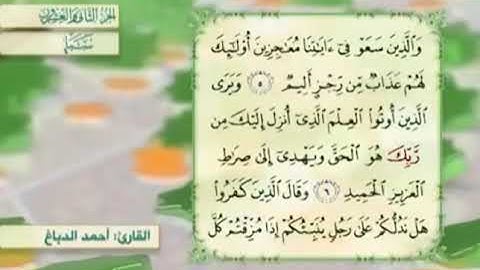 الجزء الثاني والعشرون
سبأ
وَالَّذِينَ سَعَوْ فِىٓ ءَايَٰتِنَا مُعَٰجِزِينَ أُو۟لَٰٓئِكَ
لَهُمْ عَذَابٌ مِّن رِّجْزٍ أَلِيمٌ ۝٥ وَيَرَى
الَّذِينَ أُوتُوا۟ الْعِلْمَ الَّذِىٓ أُنزِلَ إِلَيْكَ مِن
رَّبِّكَ هُوَ الْحَقَّ وَيَهْدِىٓ إِلَىٰ صِرَٰطِ
الْعَزِيزِ الْحَمِيدِ ۝٦ وَقَالَ الَّذِينَ كَفَرُوا۟
هَلْ نَدُلُّكُمْ عَلَىٰ رَجُلٍ يُنَبِّئُكُمْ إِذَا مُزِّقْتُمْ كُلَّ
القارئ: أحمد الدباغ